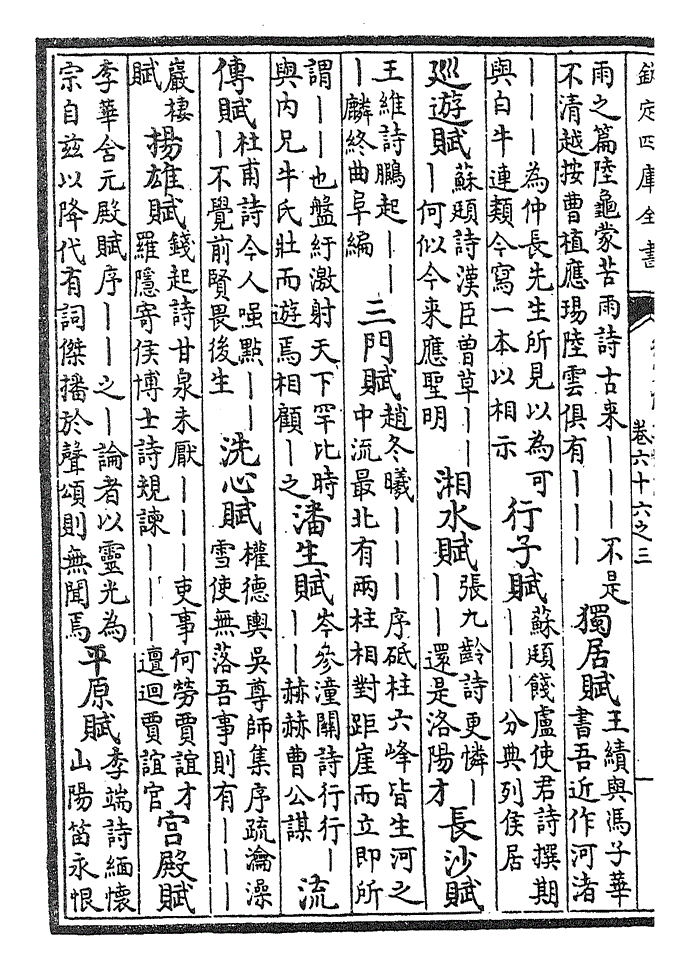 欽定四庫全書
卷六十六之三
雨之篇陸龜蒙苦雨詩古来｜｜｜不是
不清越按曹植應瑒陸雲俱有｜｜｜
獨居賦
王績與馮子華
書吾近作河渚
｜｜｜為仲長先生所見以為可
與白牛連類今寫一本以相示
行子賦
蘇頲餞盧使君詩撰期
｜｜｜分典列侯居
廵遊賦
蘇頲詩漢臣曾草｜｜
｜何似今来應聖明
湘水賦
張九齡詩更憐｜
｜｜還是洛陽才
長沙賦
王維詩鵬起｜｜
｜麟終曲阜編
三門賦
趙冬曦｜｜｜序砥柱六峰皆生河之
中流最北有兩柱相對距崖而立即所
謂｜｜也盤紆激射天下罕比時
與内兄牛氏壯而遊焉相顧｜之
潘生賦
岑參潼關詩行行｜
｜｜赫赫曹公謀
流
傳賦
杜甫詩今人嗤點｜｜
｜不覺前賢畏後生
洗心賦
權德輿吳尊師集序疏瀹澡
雪使無落吾事則有｜｜｜
巖棲
賦
揚雄賦
錢起詩甘泉未厭｜｜｜吏事何勞賈誼才
羅隱寄侯博士詩規諫｜｜｜邅迴賈誼官
宫殿賦
李華含元殿賦序｜｜之｜論者以靈光為
宗自兹以降代有詞傑播於聲頌則無聞焉
平原賦
李端詩緬懷
山陽笛永恨